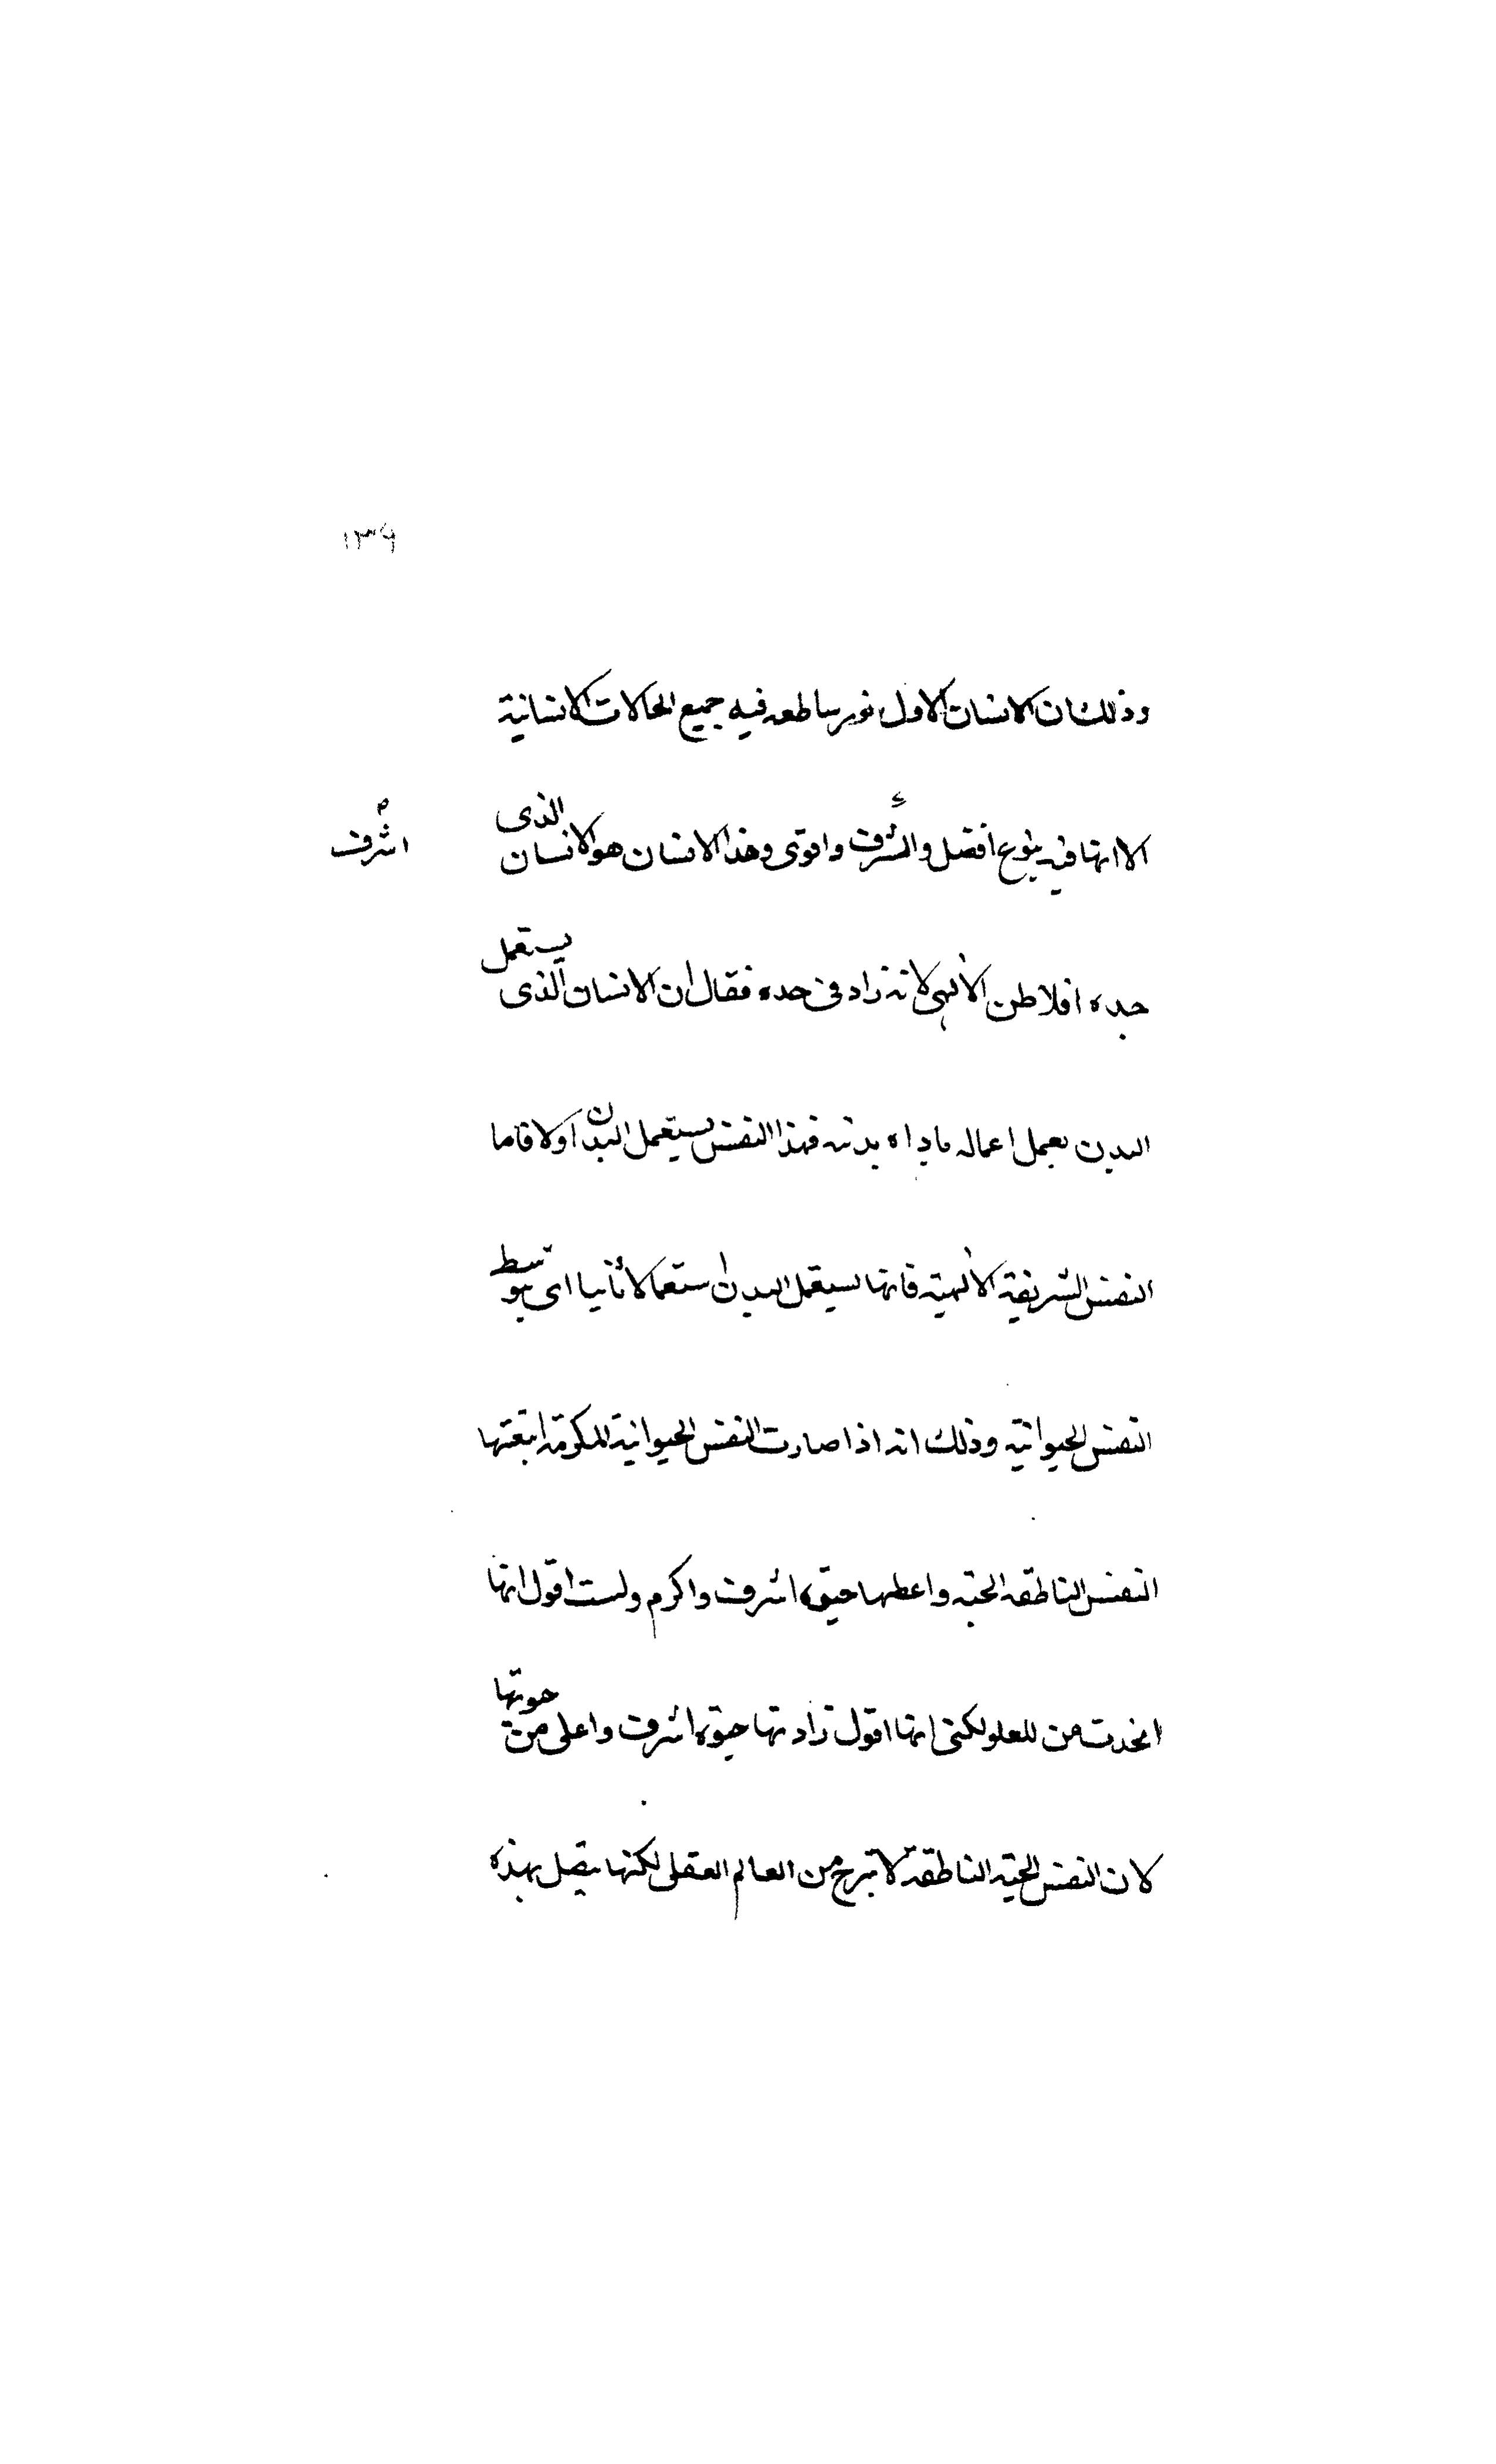 ١٣٩
وذلك ان الانسان الاول نور ساطعه فيه جميع الحالات الانسانية
الا انها فيه بنوع افضل والشرف واقوى وهذا الانسان هو الانسان الذى
اشرف
حده افلاطن الالهى لانه زاد فى حده فقال ان الانسان الذى يستعمل
البدن يعمل اعماله باداه بدنه فهذا النفس يستعمل البدن اولا فاما
النفس الشريفة الالهية فانها يستعمل البدن استعمالا ثانيا اى بتوسط
النفس الحيوانية وذلك انه اذا صارت النفس الحيوانية المكونة اتبعتها
النفس الناطقه الحيه واعطها حيوة اشرف واكرم ولست اقول انها
انحدرت من العلو لكنى انها اقول زادتها حيوة اشرف واعلى من حيوتها
لان النفس الحية الناطقة لا تبرح من العالم العقلى لكنها يتصل بهذه